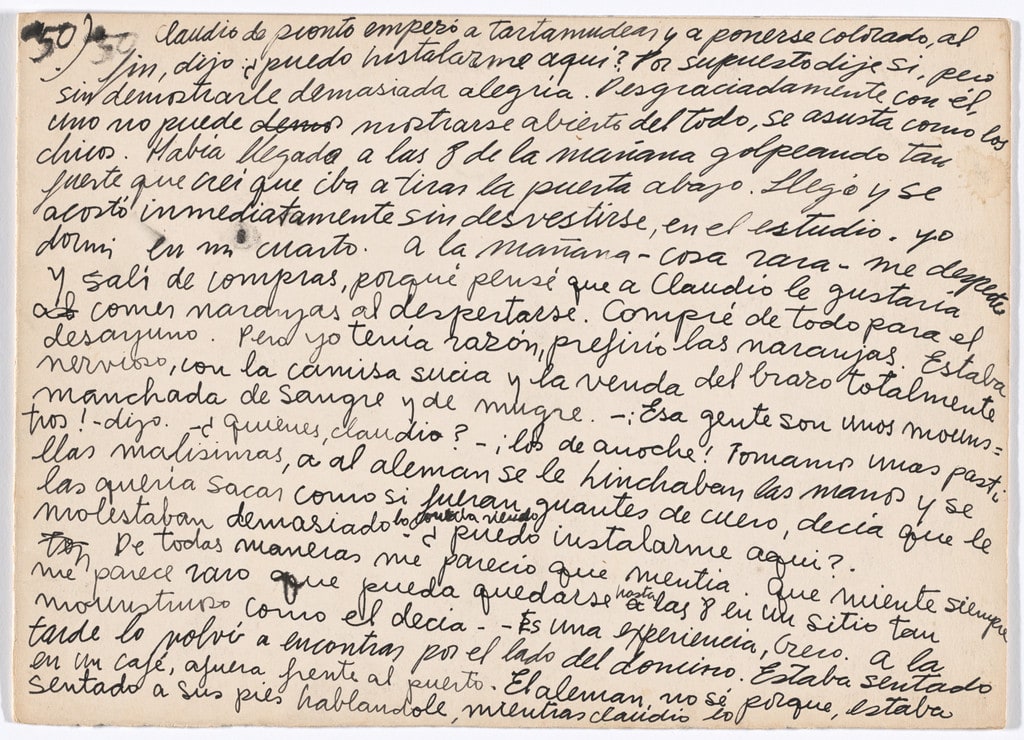 50) 50 Claudio de pronto empezó a tartamudear y a ponerse colorado, al
fin, dijo ¿puedo instalarme aquí? Por supuesto dije si, pero
sin demostrarle demasiada alegría. Desgraciadamente con él,
uno no puede demos mostrarse abierto del todo, se asusta como los
chicos. Había llegado a las 8 de la mañana golpeando tan
fuerte que creí que iba a tirar la puerta abajo. Llegó y se
acostó inmediatamente sin desvestirse, en el estudio. yo
dormi en mi cuarto. A la mañana - cosa rara - me desperté
y salí de compras, porqué pensé que a Claudio le gustaría
comer naranjas al despertarse. Compré de todo para el
desayuno. Pero yo tenía razón, prefirió las naranjas. Estaba
nervioso, con la camisa sucia y la venda del brazo totalmente
manchada de sangre y de mugre. -¡Esa gente son unos mouns=
tros! - dijo. -¿quiénes, claudio? -¡los de anoche! Tomamos unas pasti
llas malísimas, a al aleman se le hinchaban las manos y se
las quería sacar como si fueran guantes de cuero, decía que le
molestaban demasiado ¿puedo instalarme aquí?.
De todas maneras me pareció que mentia. Que miente siempre
me parece raro que pueda quedarse hasta a las 8 en un sitio tan
mounstruoso como el decia. - Es una experiencia, creo. A la
tarde lo volví a encontrar por el lado del domino. Estaba sentado
en un café, afuera, frente al puerto. El aleman, no sé porque, estaba
sentado a sus pies hablandole, mientras claudio lo